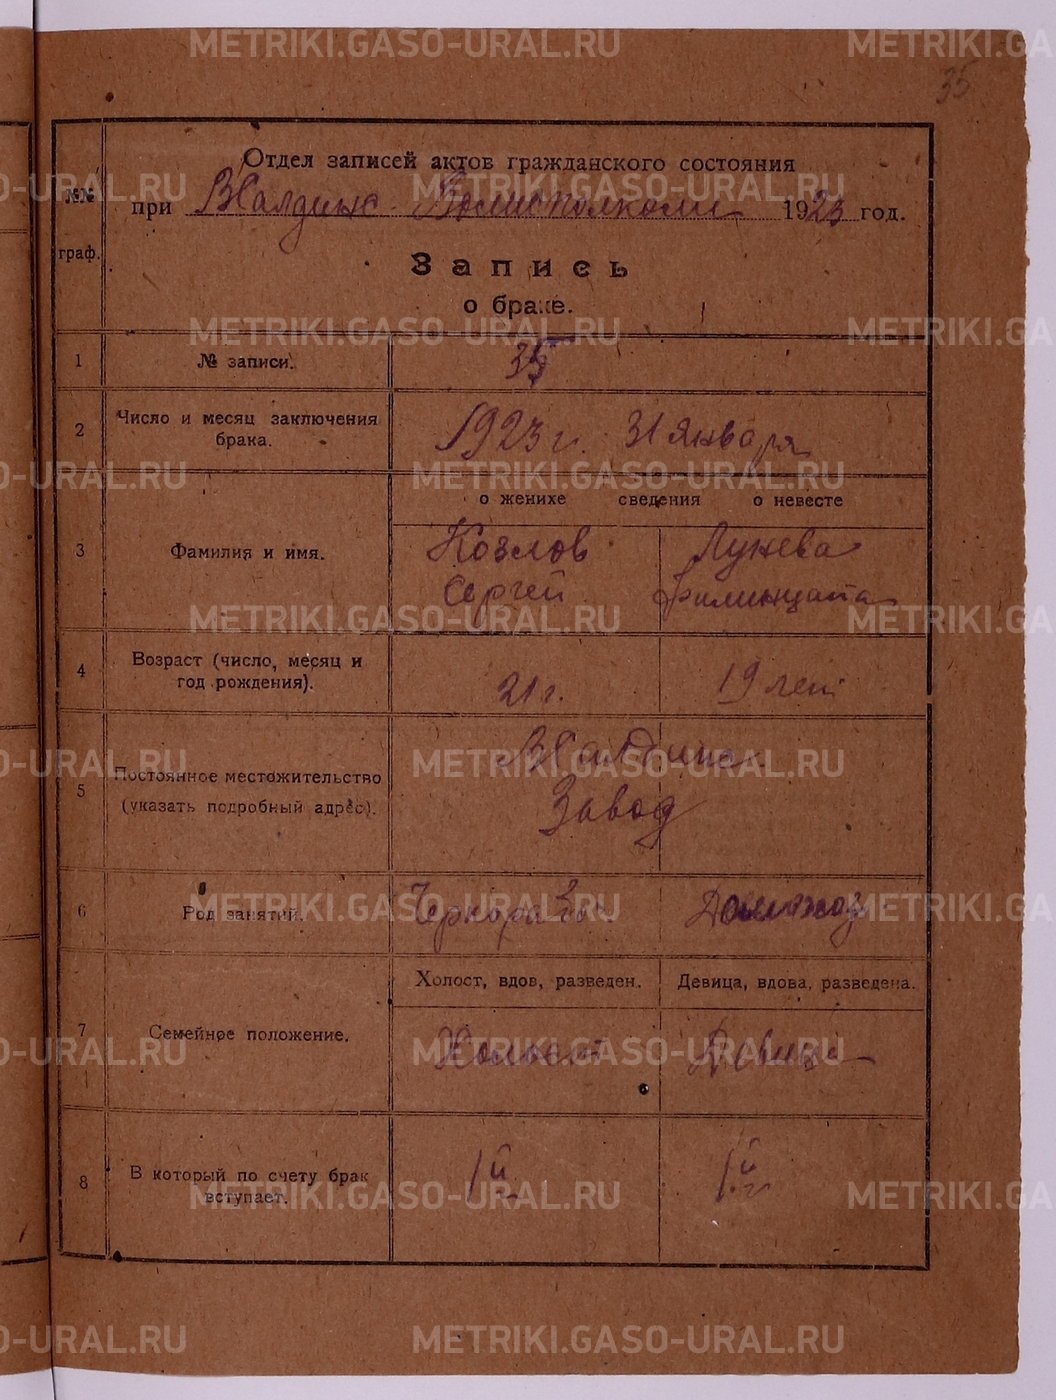 35
Отдел записей актов гражданского состояния
при В Салдинс. Волисполкоме 1923 год.
№№ граф.
Запись
о браке.
1 № записи. 35
2 Число и месяц заключения брака. 1923 г. 31 Января
о женихе сведения о невесте
3 Фамилия и имя. Козлов Сергей Лунева
4 Возраст (число, месяц и год рождения). 21 г. 19 лет
5 Постоянное местожительство (указать подробный адрес). В Салдинс. Завод
6 Род занятий. Чернораб. Домохоз
Холост, вдов, разведен. Девица, вдова, разведена.
7 Семейное положение. Холост Девица
8 В который по счету брак вступает. 1й 1й
METRIKI.GASO-URAL.RU